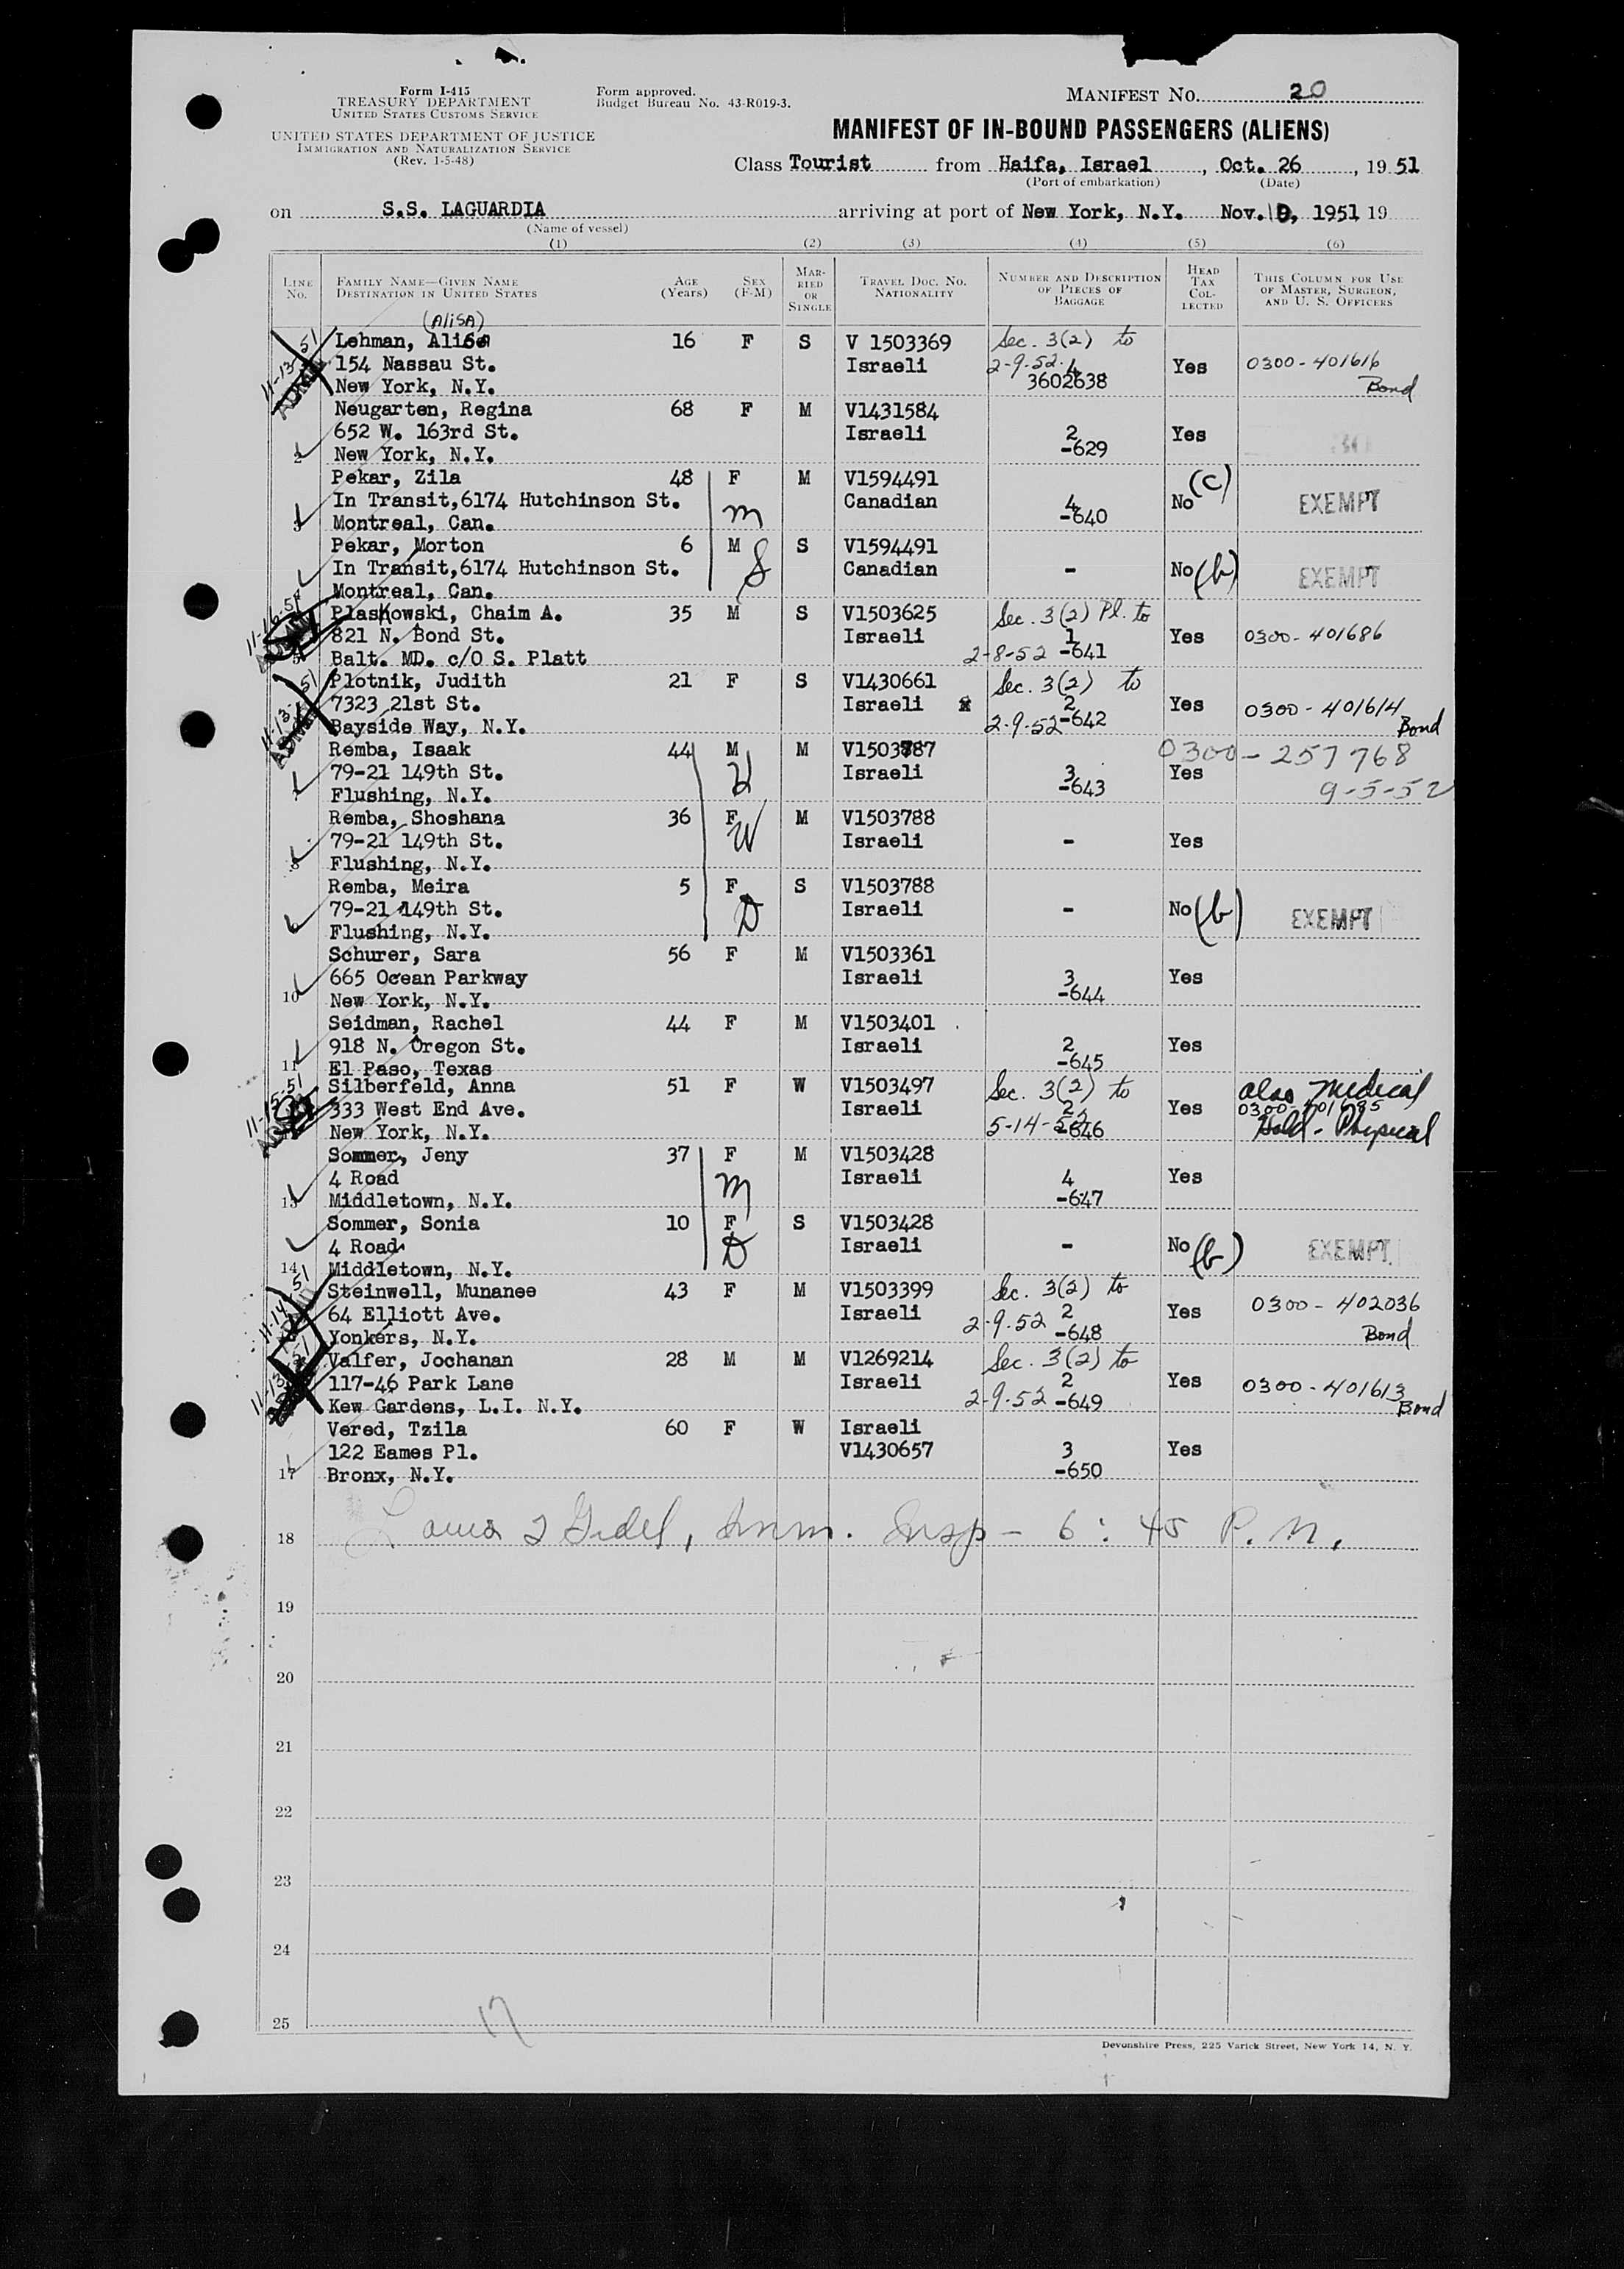 Form I-415
TREASURY DEPARTMENT
UNITED STATES CUSTOMS SERVICE
UNITED STATES DEPARTMENT OF JUSTICE
IMMIGRATION AND NATURALIZATION SERVICE
(Rev. 1-5-48)
Form approved.
Budget Bureau No. 43-R019-3.
MANIFEST NO. 20
MANIFEST OF IN-BOUND PASSENGERS (ALIENS)
Class Tourist from Haifa, Israel, Oct. 26, 1951
(Port of embarkation) (Date)
on S.S. LAGUARDIA arriving at port of New York, N.Y. Nov. 1951 19
(Name of vessel)
(1) (2) (3) (4) (5) (6)
LINE NO. FAMILY NAME—GIVEN NAME DESTINATION IN UNITED STATES AGE (Years) SEX (F-M) MARRIED OR SINGLE TRAVEL DOC. NO. NATIONALITY NUMBER AND DESCRIPTION OF PIECES OF BAGGAGE HEAD TAX COLLECTED THIS COLUMN FOR USE OF MASTER, SURGEON, AND U. S. OFFICERS
(AliSA)
11-13-51 Lehman, Alisa 16 F S V 1503369 Sec. 3(2) to
154 Nassau St. Israeli 2-9-52. 4 Yes 0300-401616
ADMIN New York, N.Y. 3602638 Bond
Neugarten, Regina 68 F M V1431584
652 W. 163rd St. Israeli 2 Yes
2 New York, N.Y. -629
Pekar, Zila 48 F M V1594491 (c)
In Transit,6174 Hutchinson St. m Canadian 4 No EXEMPT
3 Montreal, Can. -640
Pekar, Morton 6 M S V1594491
In Transit,6174 Hutchinson St. S Canadian - No (b) EXEMPT
Montreal, Can.
11-16-51 Plaskowski, Chaim A. 35 M S V1503625 Sec. 3(2) Pl. to
821 N. Bond St. Israeli 1 Yes 0300-401686
5 Balt. MD. c/O S. Platt 2-8-52 -641
11-13-51 Plotnik, Judith 21 F S V1430661 Sec. 3(2) to
7323 21st St. Israeli 2 Yes 0300-401614
Bayside Way, N.Y. 2-9-52 -642 Bond
Remba, Isaak 44 M M V1503787 0300-257768
79-21 149th St. H Israeli 3 Yes
Flushing, N.Y. -643 9-5-52
Remba, Shoshana 36 F M V1503788
79-21 149th St. W Israeli - Yes
8 Flushing, N.Y.
Remba, Meira 5 F S V1503788
79-21 149th St. D Israeli - No (b) EXEMPT
Flushing, N.Y.
Schurer, Sara 56 F M V1503361
665 Ocean Parkway Israeli 3 Yes
10 New York, N.Y. -644
Seidman, Rachel 44 F M V1503401
918 N. Oregon St. Israeli 2 Yes
11 El Paso, Texas -645
11-15-51 Silberfeld, Anna 51 F W V1503497 Sec. 3(2) to also Medical
333 West End Ave. Israeli 2 Yes 0300-401685
New York, N.Y. 5-14-52 -646 Hold - Physical
Sommer, Jeny 37 F M V1503428
4 Road m Israeli 4 Yes
13 Middletown, N.Y. -647
Sommer, Sonia 10 F S V1503428
4 Road D Israeli - No (b) EXEMPT
14 Middletown, N.Y.
11-14-51 Steinwell, Munanee 43 F M V1503399 Sec. 3(2) to
64 Elliott Ave. Israeli 2 Yes 0300-402036
Yonkers, N.Y. 2-9-52 -648 Bond
11-13-51 Valfer, Jochanan 28 M M V1269214 Sec. 3(2) to
117-46 Park Lane Israeli 2 Yes 0300-401613
Kew Gardens, L.I. N.Y. 2-9-52 -649 Bond
Vered, Tzila 60 F W Israeli
122 Eames Pl. V1430657 3 Yes
17 Bronx, N.Y. -650
18 Imm. Insp - 6:45 P.M.
19
20
21
22
23
24
25 17
Devonshire Press, 225 Varick Street, New York 14, N. Y.